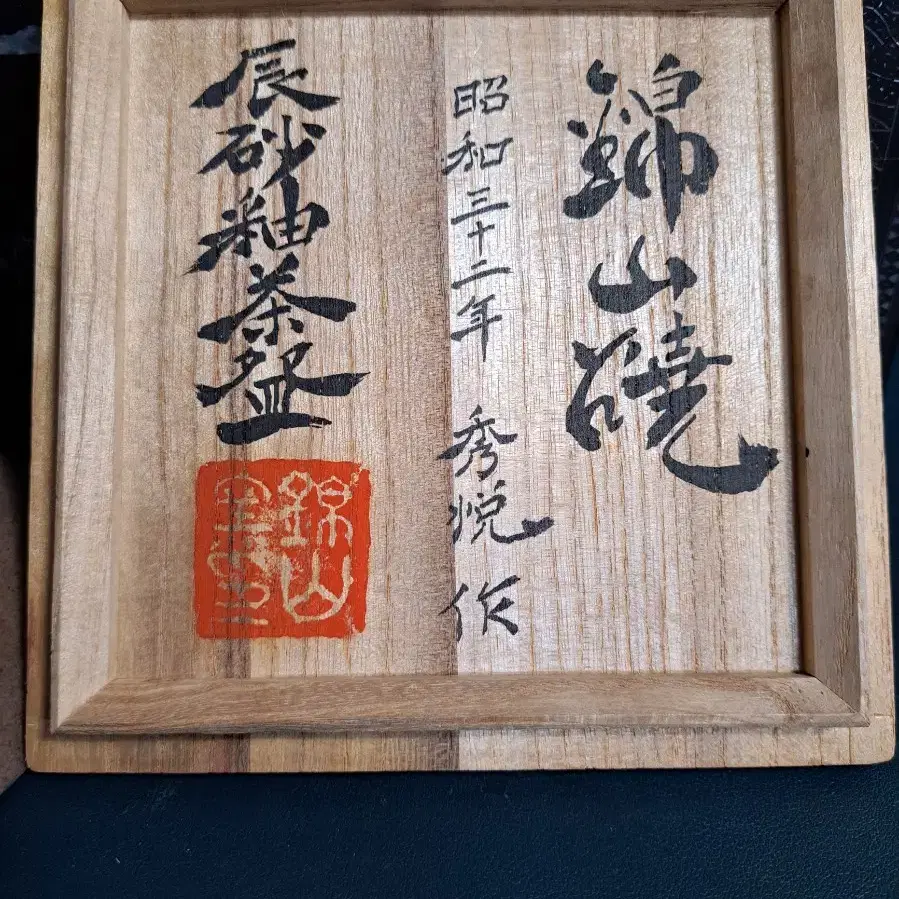 錦山磽
昭和三十二年 秀悦 作
辰砂釉茶盌
錦山